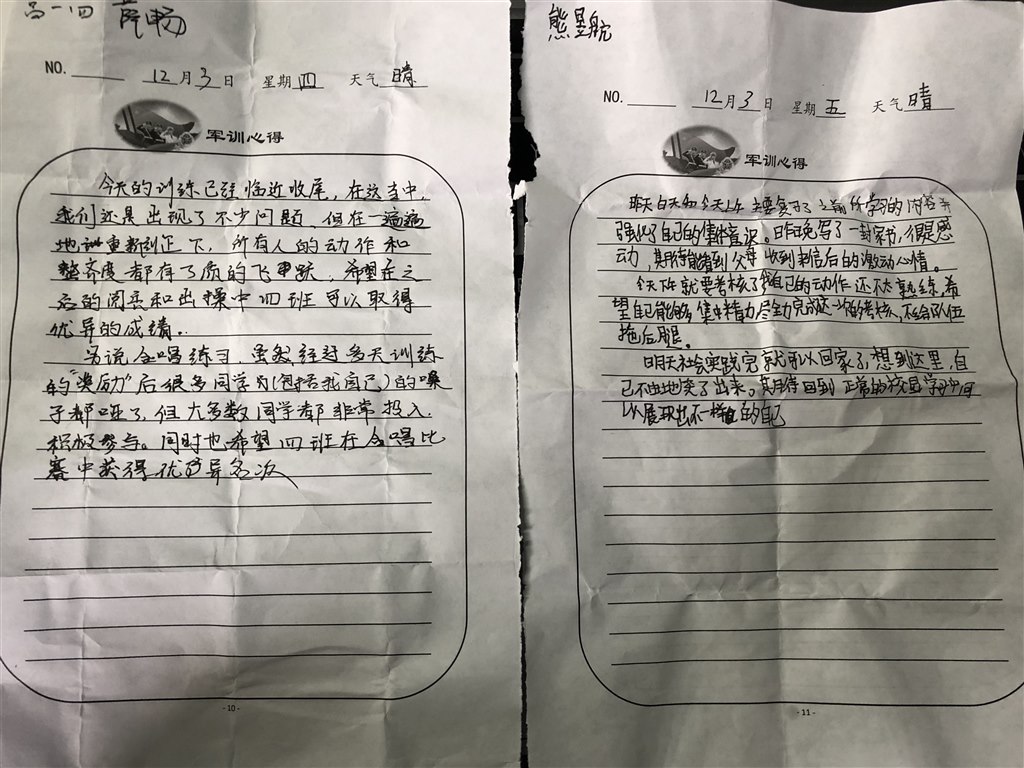 高一四 畅
NO. 12月3日 星期四 天气 晴
军训心得
今天的训练已经临近收尾，在这当中，
我们还是出现了不少问题，但在一遍遍
地重新纠正下，所有人的动作和
整齐度都有了质的飞跃，希望在之
后的阅兵和会操中四班可以取得
优异的成绩。
另说合唱练习，虽然经过多天训练
的"洗历"后很多同学(包括我自己)的嗓
子都哑了，但大多数同学都非常投入，
积极参与。同时也希望四班在合唱比
赛中获得优异名次
- 10 -
熊昱航
NO. 12月3日 星期五 天气 晴
军训心得
昨天白天和今天上午主要复习了之前所学习的内容并
强化了自己的集体意识。昨日晚写了一封家书，很是感
动，期待能看到父母收到来信后的激动心情。
今天下午就要考核了我自己的动作还不太熟练，希
望自己能够集中精力尽全力完成这一次的考核，不给队伍
拖后腿。
明天社会实践完就可以回家了，想到这里，自
己不由地笑了出来。期待回到正常的校园学习中可
以展现出不一样的自己
- 11 -